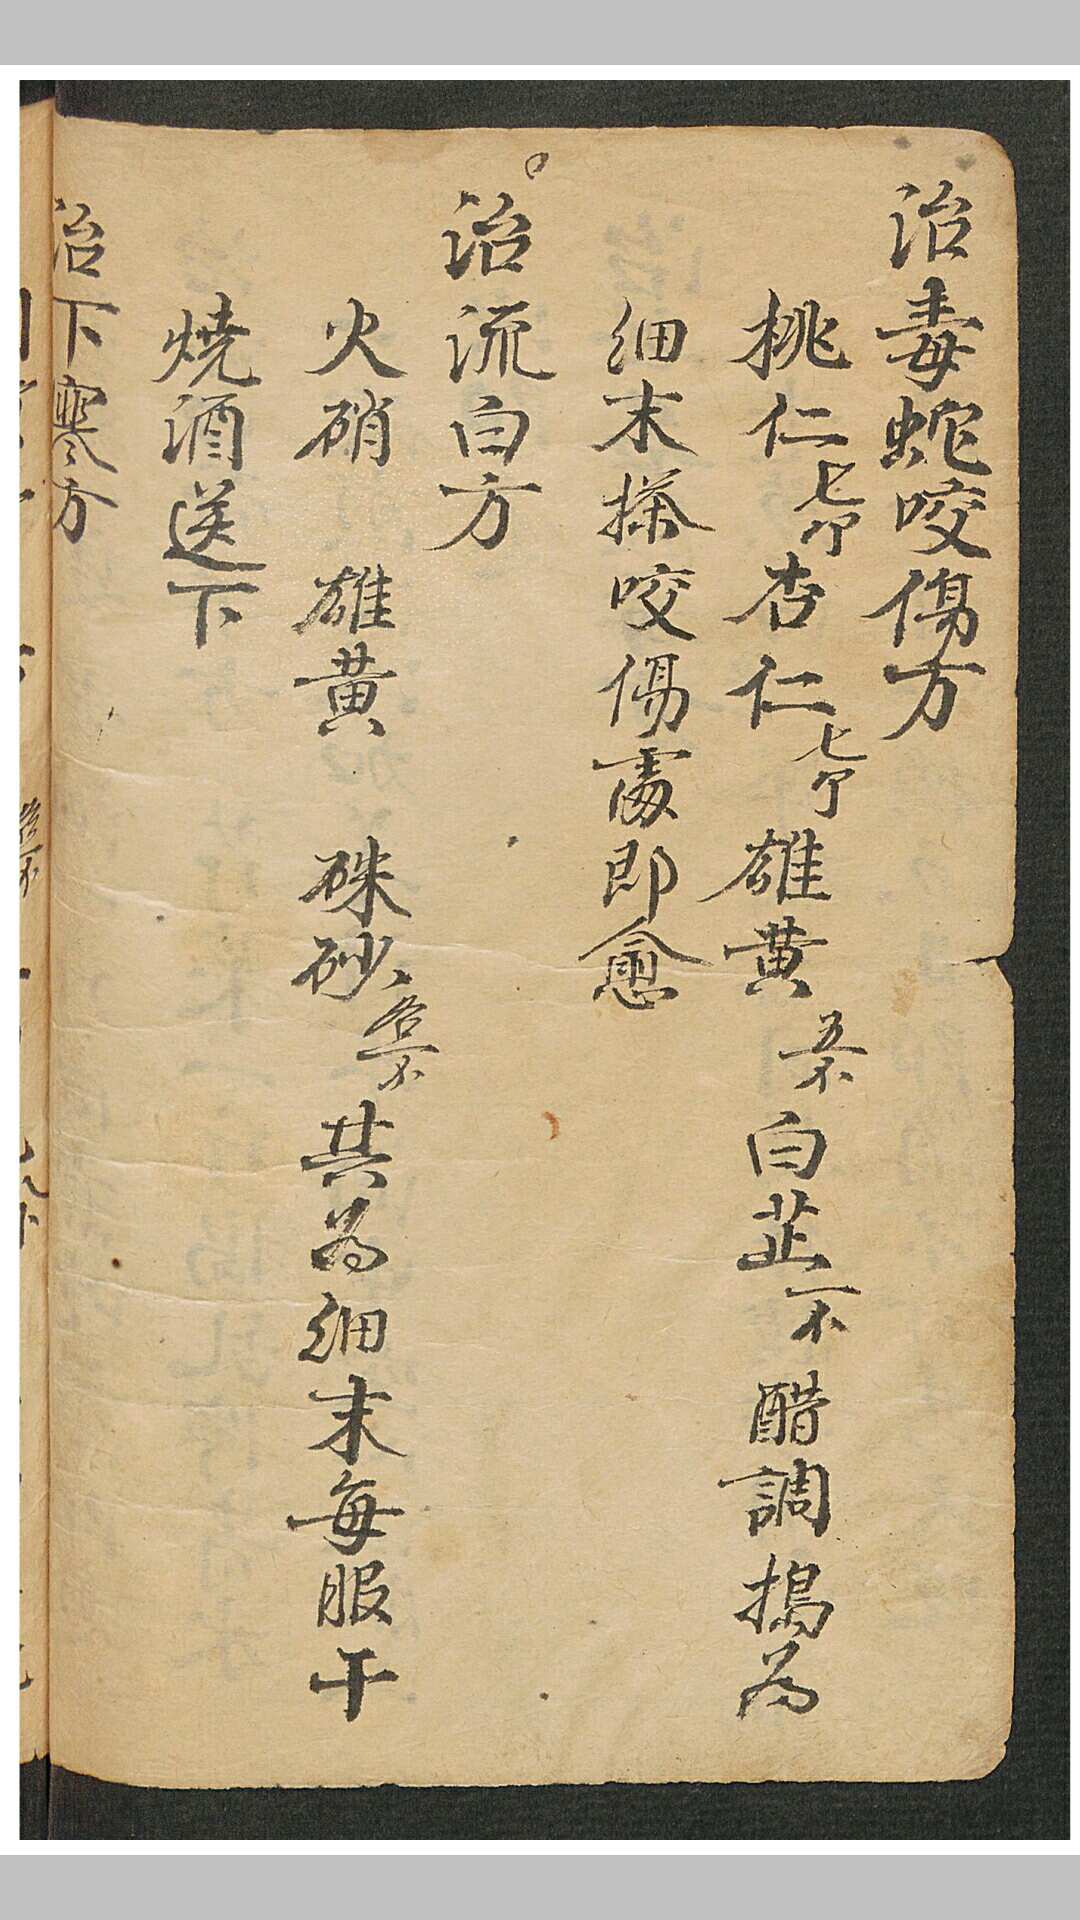 治毒蛇咬傷方
桃仁七个杏仁七个雄黄五钱白芷一钱醋調搗為
細末搽咬傷處即愈
治流白方
火硝 雄黄 硃砂各一钱共為細末每服干
燒酒送下
治下寒方